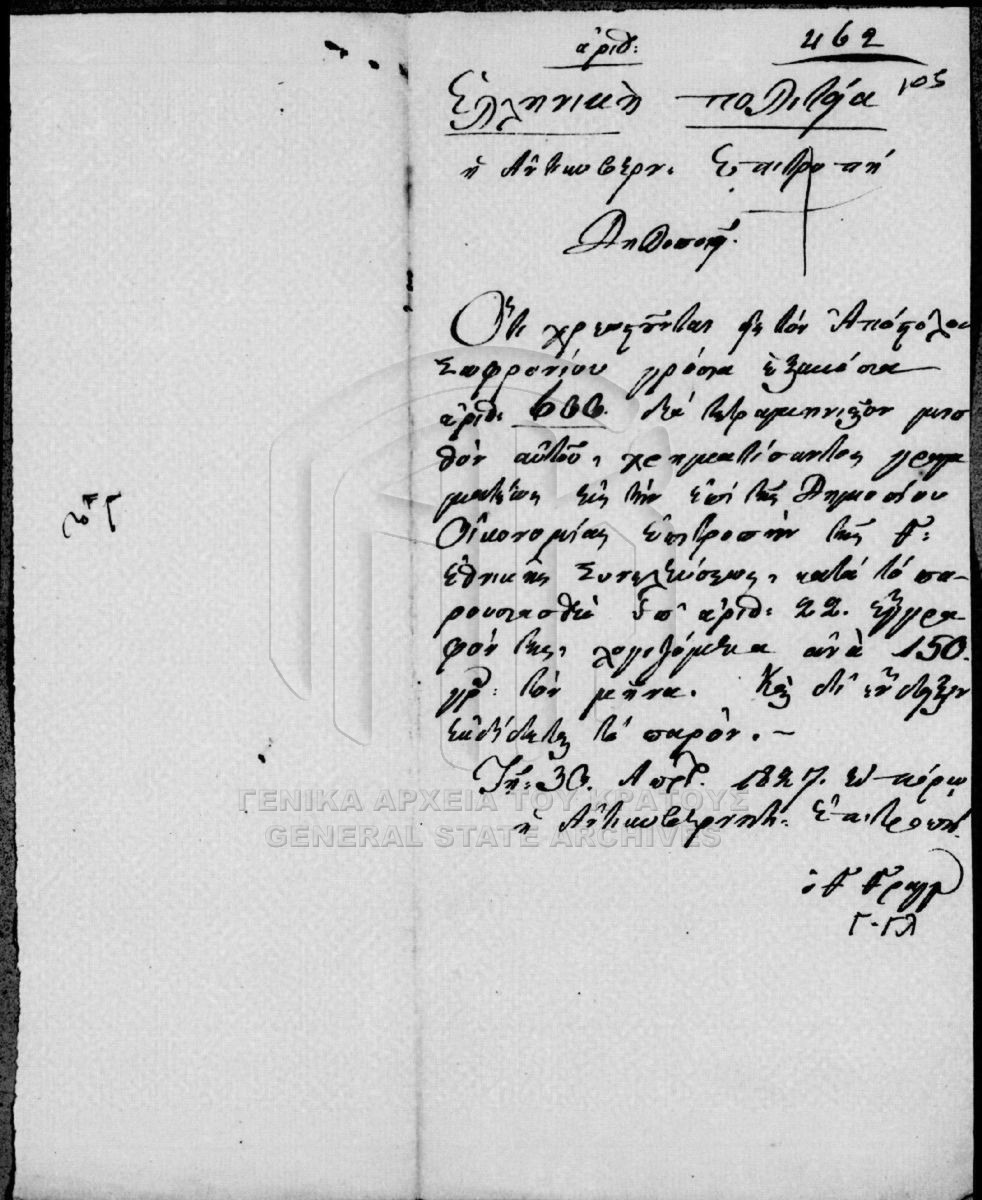 ἀριθ: 462
Ἑλληνικὴ πολιτεία
ἡ Ἀντικυβερν: Ἐπιτροπὴ
Δηλοποιεῖ.
Ὅτι χρεωστεῖται εἰς τὸν Ἀπόστολον
Σωφρονίου γρόσια ἑξακόσια
ἀριθ: 600. διὰ τετραμηνιαῖον μισ
θόν αὐτοῦ, χρηματίσαντος γραμ
ματέως εἰς τὴν ἐπὶ τῆς Δημοσίου
Οἰκονομίας ἐπιτροπὴν τῆς Γ:
ἐθνικῆς Συνελεύσεως, κατὰ τὸ πα-
ρουσιασθὲν ὑπ' ἀριθ: 22. ἔγγρα
φόν της, λογιζόμενα ἀνὰ 150.
γρ: τὸν μῆνα. Καὶ δι' ἔνδειξιν
ἐκδίδεται τὸ παρόν. -
Τῇ: 30. Ἀπρλ. 1827. ἐν πόρῳ
ἡ Ἀντικυβερνητ: Ἐπιτροπὴ.
ὁ Γ Γραμμ
Γ. Γλ
ΓΕΝΙΚΑ ΑΡΧΕΙΑ ΤΟΥ ΚΡΑΤΟΥΣ
GENERAL STATE ARCHIVES